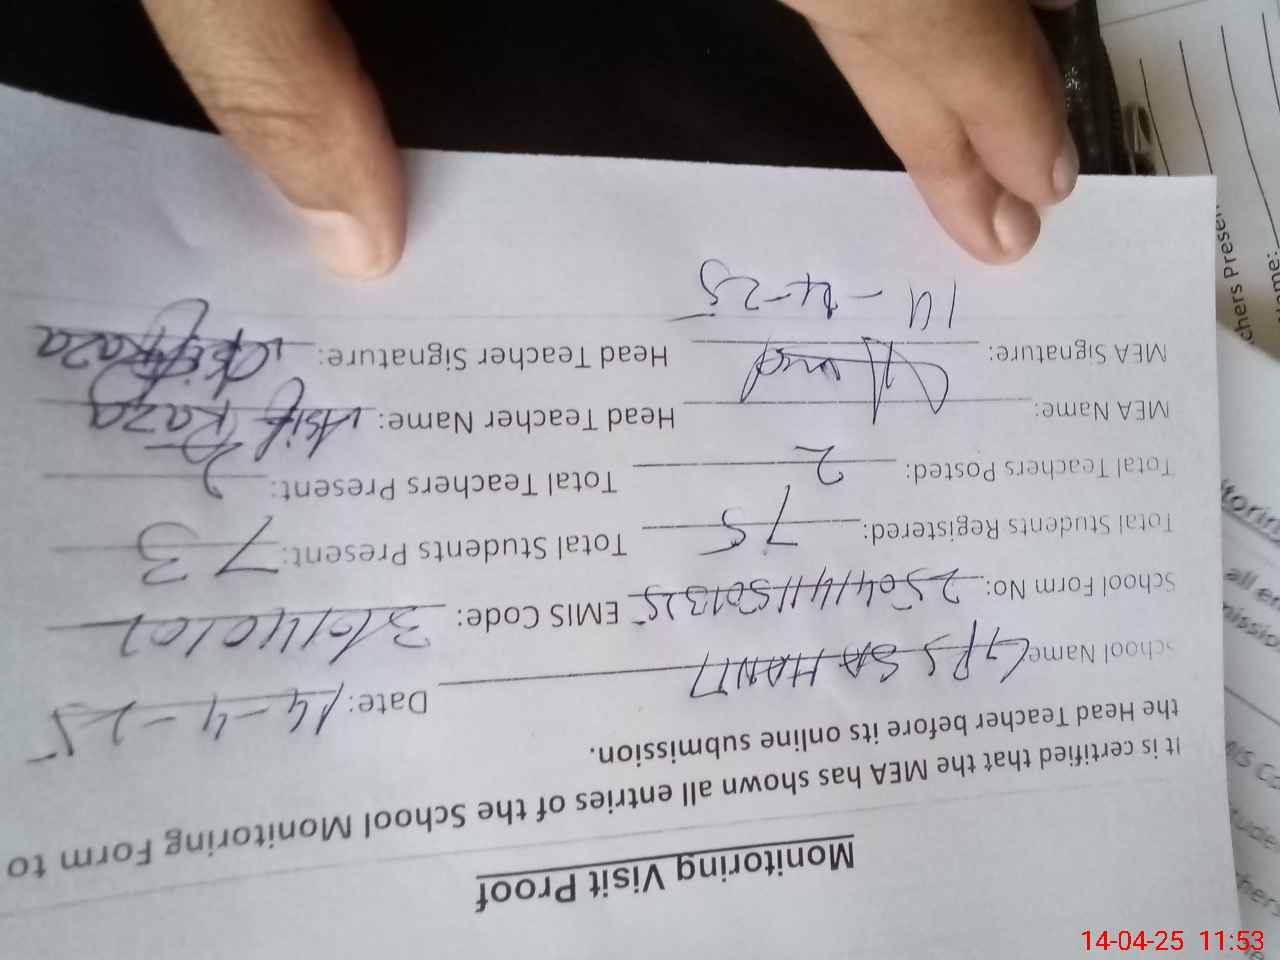 Monitoring Visit Proof
It is certified that the MEA has shown all entries of the School Monitoring Form to
the Head Teacher before its online submission.
School Name GPS SAHANTI Date: 14-4-25
School Form No: 25041411501325 EMIS Code: 36140102
Total Students Registered: 75 Total Students Present: 73
Total Teachers Posted: 2 Total Teachers Present: 2
MEA Name: Head Teacher Name: Asif Raza
MEA Signature: Head Teacher Signature: Asif Raza
14-4-25
chers Presen
14-04-25 11:53